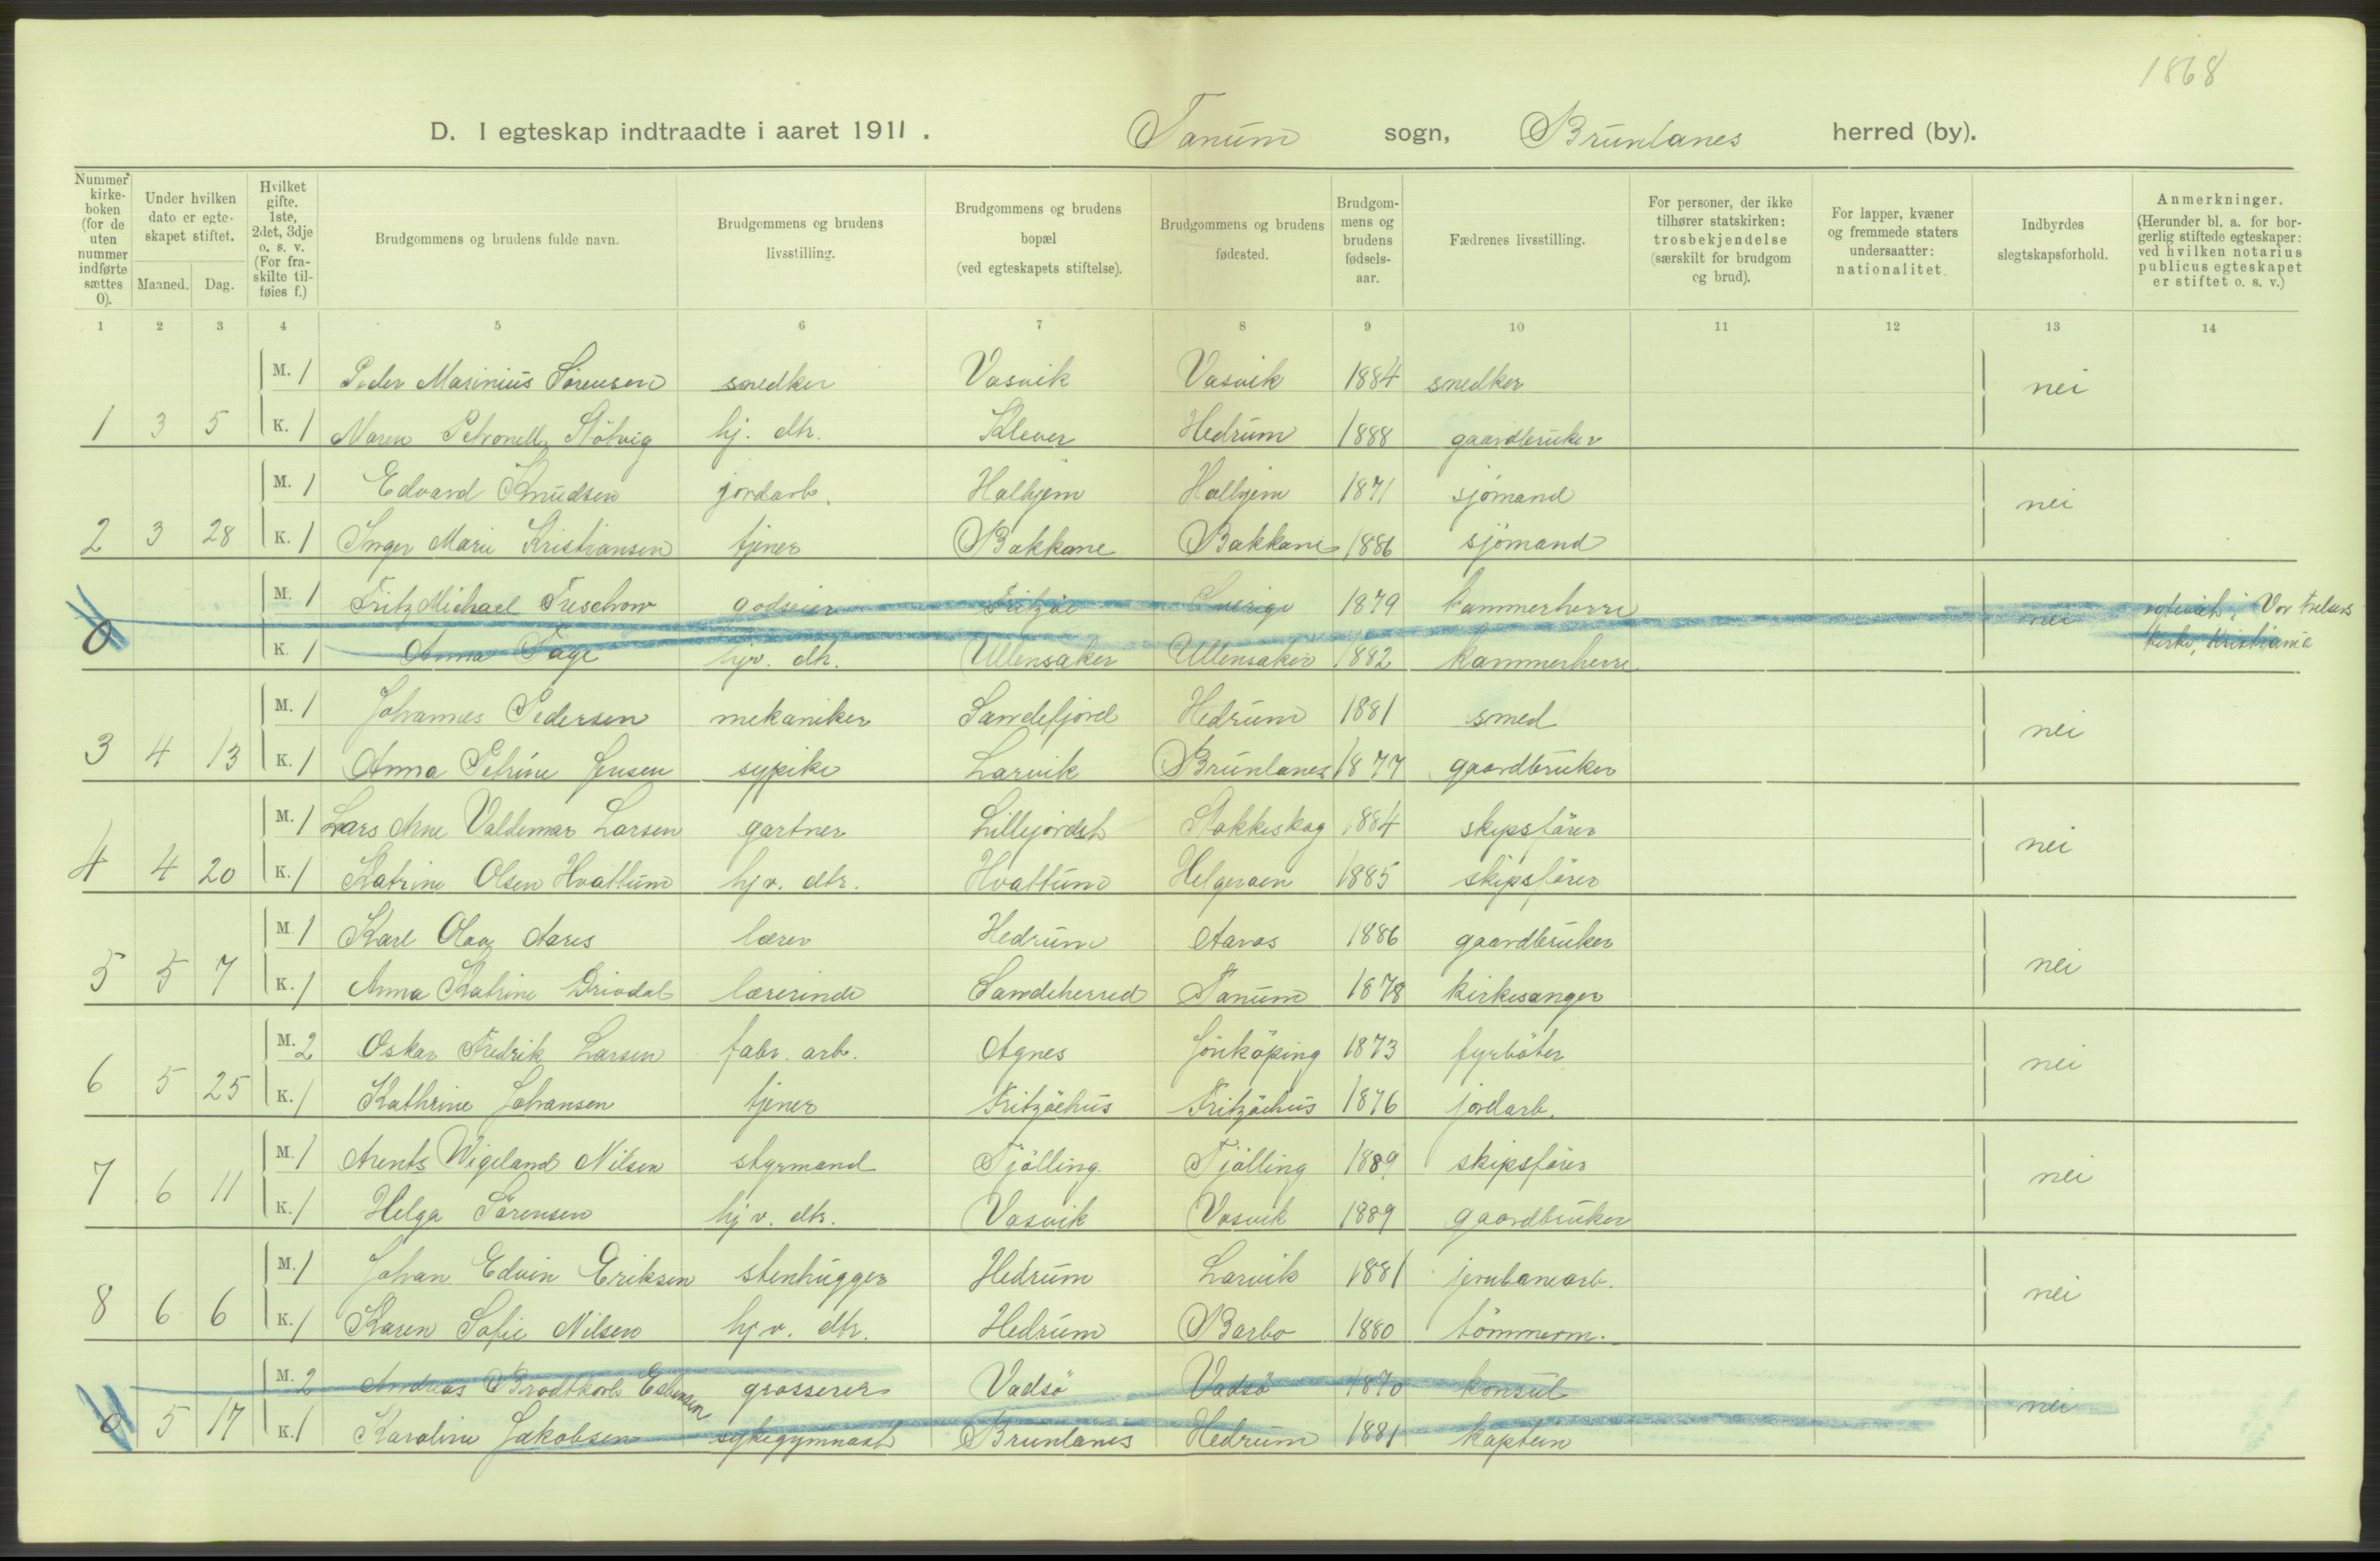 1868
D. I egteskap indtraadte i aaret 1911. Tanum sogn, Brunlanes herred (by).
Nummer kirkeboken (for de uten nummer indførte sættes 0). | Under hvilken dato er egteskapet stiftet. Maaned. Dag. | Hvilket gifte. 1ste, 2det, 3dje o. s. v. (For fraskilte tilføies f.) | Brudgommens og brudens fulde navn. | Brudgommens og brudens livsstilling. | Brudgommens og brudens bopæl (ved egteskapets stiftelse). | Brudgommens og brudens fødested. | Brudgommens og brudens fødselsaar. | Fædrenes livsstilling. | For personer, der ikke tilhører statskirken: trosbekjendelse (særskilt for brudgom og brud). | For lapper, kvæner og fremmede staters undersaatter: nationalitet. | Indbyrdes slegtskapsforhold. | Anmerkninger. (Herunder bl. a. for borgerlig stiftede egteskaper: ved hvilken notarius publicus egteskapet er stiftet o. s. v.)
1 2 3 4 5 6 7 8 9 10 11 12 13 14
M. 1 Peder Marinius Sörensen snedker Vasvik Vasvik 1884 snedker nei
1 3 5 K. 1 Maren Petronelle Stölvig hj. dtr. Klever Hedrum 1888 gaardbruker
M. 1 Edvard Knudsen jordarb. Halhjem Halhjem 1871 sjömand nei
2 3 28 K. 1 Inger Marie Kristiansen tjener Bakkane Bakkane 1886 sjömand
M. 1 Fritz Michael Treschow godseier Fritzöe Sverige 1879 kammerherre nei i Vor Frelsers
0 K. 1 Anna Fage hjv. dtr. Ullensaker Ullensaker 1882 kammerherre kirke, Kristiania
M. 1 Johannes Pedersen mekaniker Sandefjord Hedrum 1881 smed nei
3 4 13 K. 1 Anna Petrine Jensen sypike Larvik Brunlanes 1877 gaardbruker
M. 1 Lars Arne Valdemar Larsen gartner Lillejordet Stokkeskog 1884 skipsförer nei
4 4 20 K. 1 Katrine Olsen Hvattum hjv. dtr. Hvattum Helgeroen 1885 skipsförer
M. 1 Karl Olav Aares lærer Hedrum Aaros 1886 gaardbruker nei
5 5 7 K. 1 Anna Katrine Drivdal lærerinde Sandeherred Tanum 1878 kirkesanger
M. 2 Oskar Fredrik Larsen fabr. arb. Agnes Jönköping 1873 fyrböter nei
6 5 25 K. 1 Kathrine Johansen tjener Fritzöehus Fritzöehus 1876 jordarb.
M. 1 Arents Wigeland Nilsen styrmand Tjölling Tjölling 1889 skipsförer nei
7 6 11 K. 1 Helga Sörensen hjv. dtr. Vasvik Vasvik 1889 gaardbruker
M. 1 Johan Edvin Eriksen stenhugger Hedrum Larvik 1881 jernbanearb. nei
8 6 6 K. 1 Karen Sofie Nilsen hjv. dtr. Hedrum Barbo 1880 tömmerm.
M. 2 Andreas Brodtkorb Esbensen grosserer Vadsö Vadsö 1870 konsul nei
0 5 17 K. 1 Karoline Jakobsen sykegymnast Brunlanes Hedrum 1881 kaptein